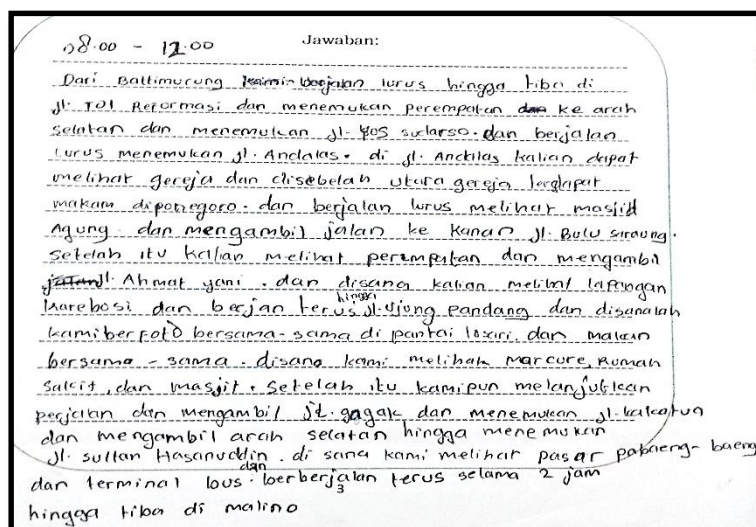 08.00 - 12.00
Jawaban:
Dari Battimurung berjalan lurus hingga tiba di
jl. Tol Reformasi dan menemukan perempatan ke arah
selatan dan menemukan jl. Yos sudarso. dan berjalan
lurus menemukan jl. Andalas. di jl. Andalas kalian dapat
melihat gereja dan disebelah utara gereja terdapat
makam diponegoro. dan berjalan lurus melihat masjid
Agung dan mengambil jalan ke kanan jl. Bulu saraung.
setelah itu kalian melihat perempatan dan mengambil
jl. Ahmat yani. dan disana kalian melihat lapangan
karebosi dan berjan terus hingga jl. ujung pandang dan disanalah
kami berfoto bersama-sama di pantai losari dan makan
bersama-sama. disana kami melihat Marcure, Rumah
sakit, dan masjit. setelah itu kamipun melanjutkan
perjalan dan mengambil jl. gagak dan menemukan jl. kakatua
dan mengambil arah selatan hingga menemukan
jl. sultan Hasanuddin. di sana kami melihat pasar pabaeng-baeng
dan terminal bus. dan berberjalan terus selama 2 jam
hingga tiba di malino